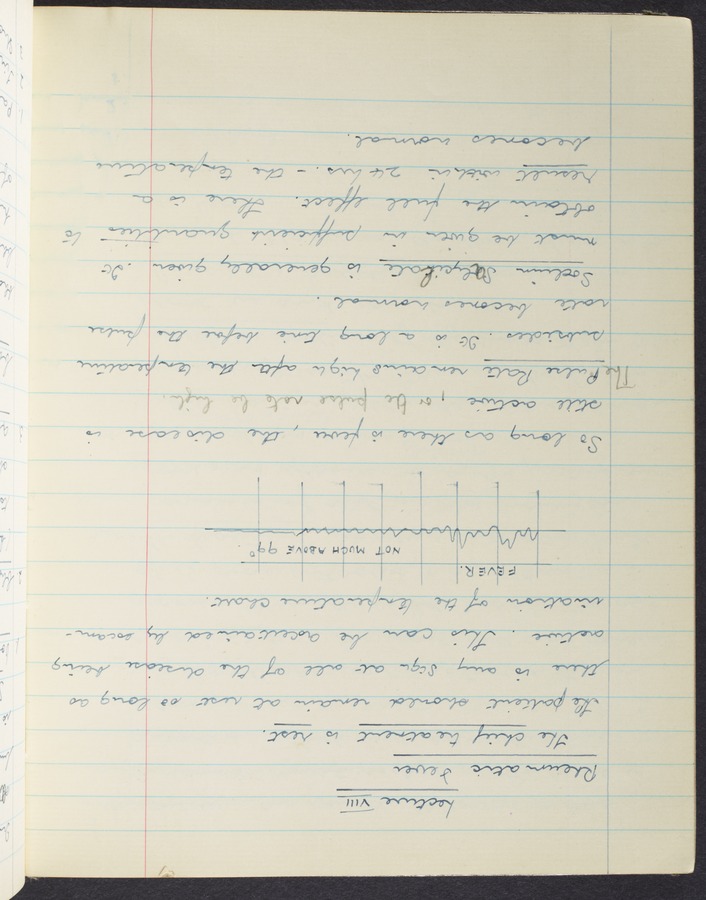 Lecture VIII
Rheumatic Fever
The chief treatment is rest.
the patient should remain at rest so long as
there is any sign at all of the disease being
active. This can be ascertained by exam-
ination of the temperature chart.
FEVER. NOT MUCH ABOVE 99°.
So long as there is fever, the disease is
still active, or the pulse rate be high.
The Pulse Rate remains high after the temperature
subsides. It is a long time before the pulse
rate becomes normal.
Sodium Salycilate is generally given. It
must be given in sufficient quantities to
obtain the full effect. There is a
result within 24 hrs. - the temperature
becomes normal.